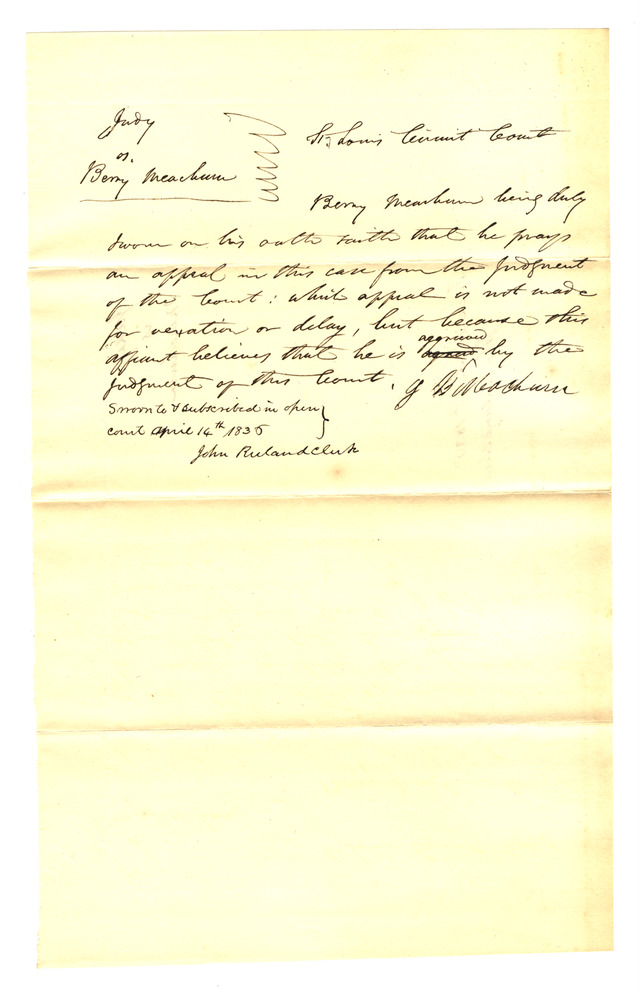 Judy
vs.
Berry Meachum
St. Louis Circuit Court
Berry Meachum being duly
sworn on his oath saith that he prays
an appeal in this case from the Judgment
of the Court: which appeal is not made
for vexation or delay, but because this
affiant believes that he is aggrieved by the
Judgment of this Court.
J B Meachum
Sworn to & subscribed in open
court April 14th 1836
John Ruland Clerk